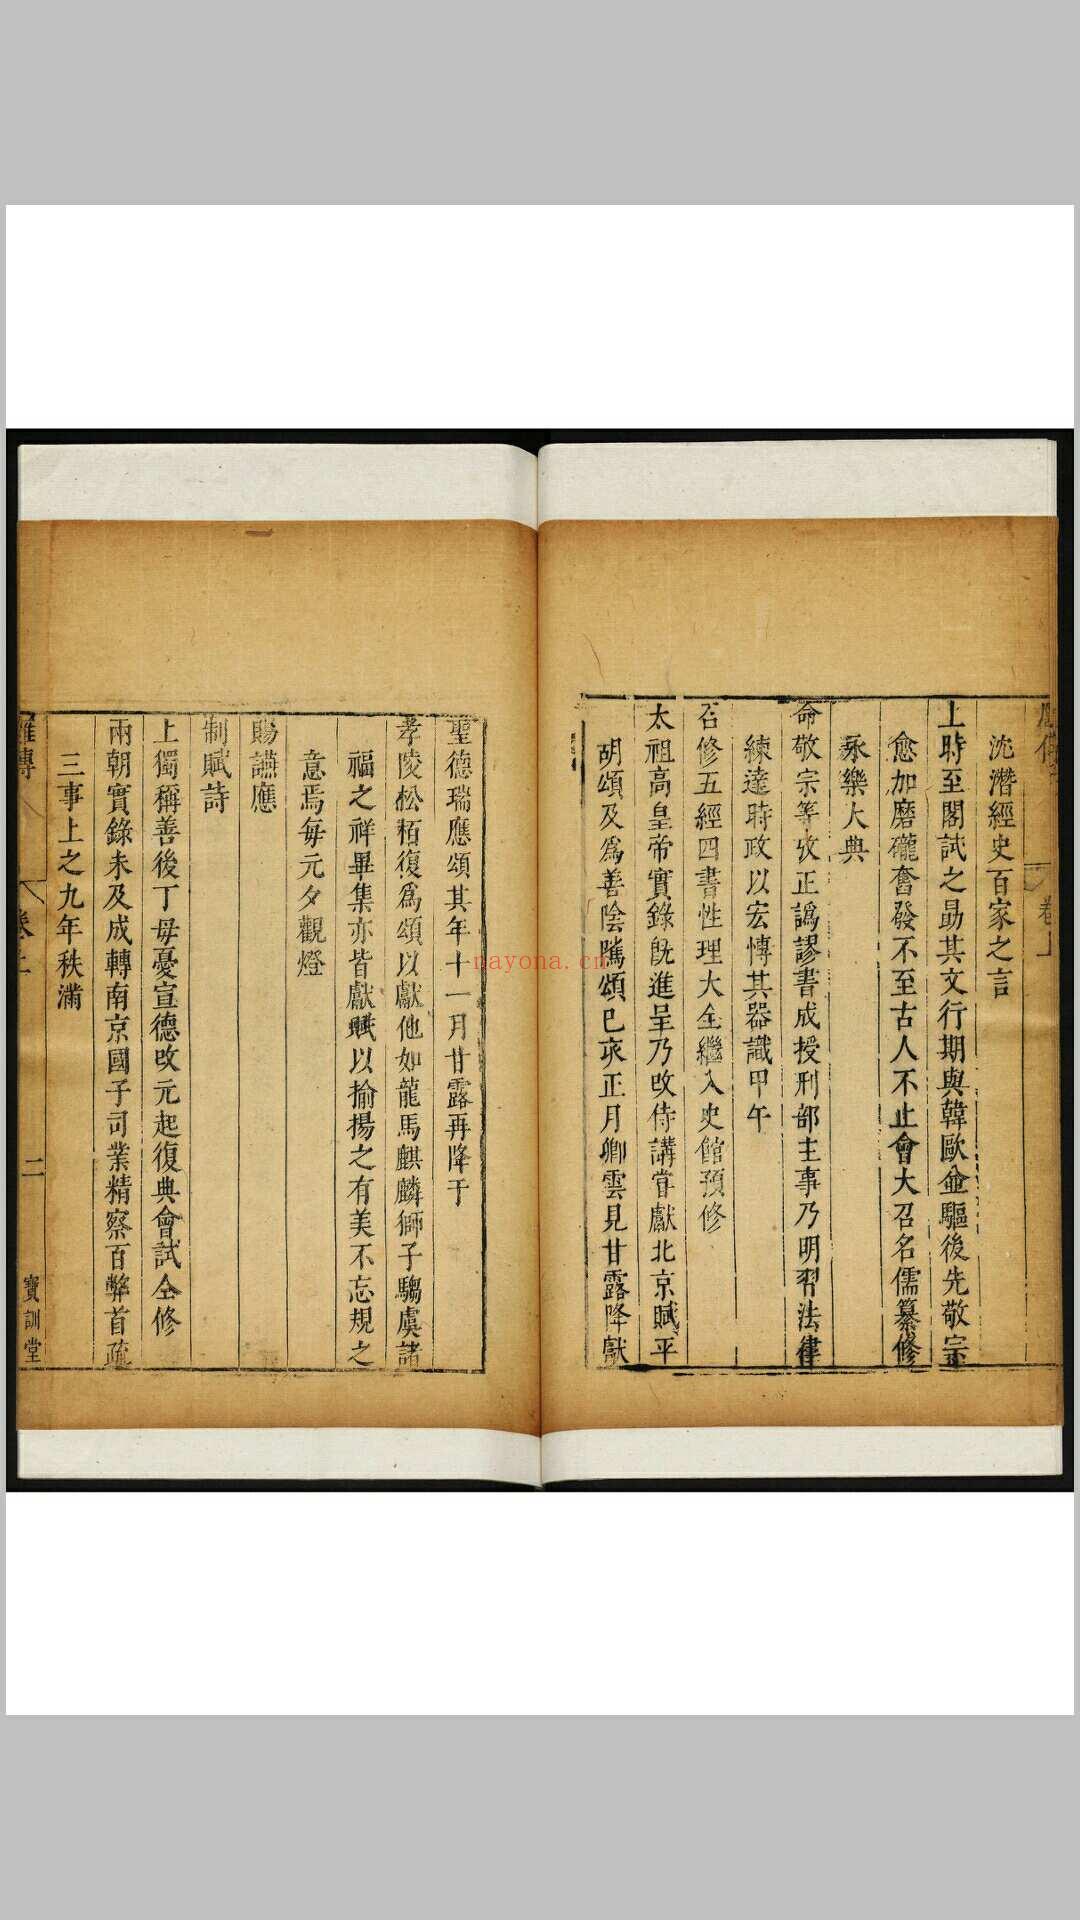 沈潛經史百家之言
上時至閣試之勗其文行期與韓歐並驅後先敬宗
愈加磨礲奮發不至古人不止會大召名儒纂修
永樂大典
命敬宗等攷正譌謬書成授刑部主事乃明習法律
練達時政以宏慱其器識甲午
召修五經四書性理大全繼入史館預修
太祖高皇帝實錄旣進呈乃攺侍講甞獻北京賦平
胡頌及爲善陰隲頌巳亥正月卿雲見甘露降獻
聖德瑞應頌其年十一月甘露再降于
孝陵松栢復爲頌以獻他如龍馬麒麟獅子騶虞諸
福之祥畢集亦皆獻賦以揄揚之有美不忘規之
意焉每元夕觀燈
賜讌應
制賦詩
上獨稱善後丁母憂宣德攺元起復典會試仝修
兩朝實錄未及成轉南京國子司業精察百弊首疏
三事上之九年秩滿
卷上 二 寶訓堂
nayona.cn